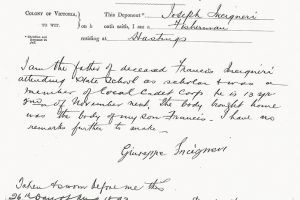 COLONY OF VICTORIA
TO WIT.
This Deponent Joseph Incigneri
on h oath saith, I am a Fisherman
residing at Hastings
I am the father of deceased Francis Incigneri
attending State School as scholar & was in
member of local Cadet Corp he is 13 yrs
2nd of November next, the body brought home
was the body of my son Francis. I have no
remarks further to make
Giuseppe Incigneri
Taken & sworn before me this